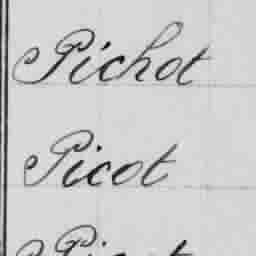 Pichot
Picot